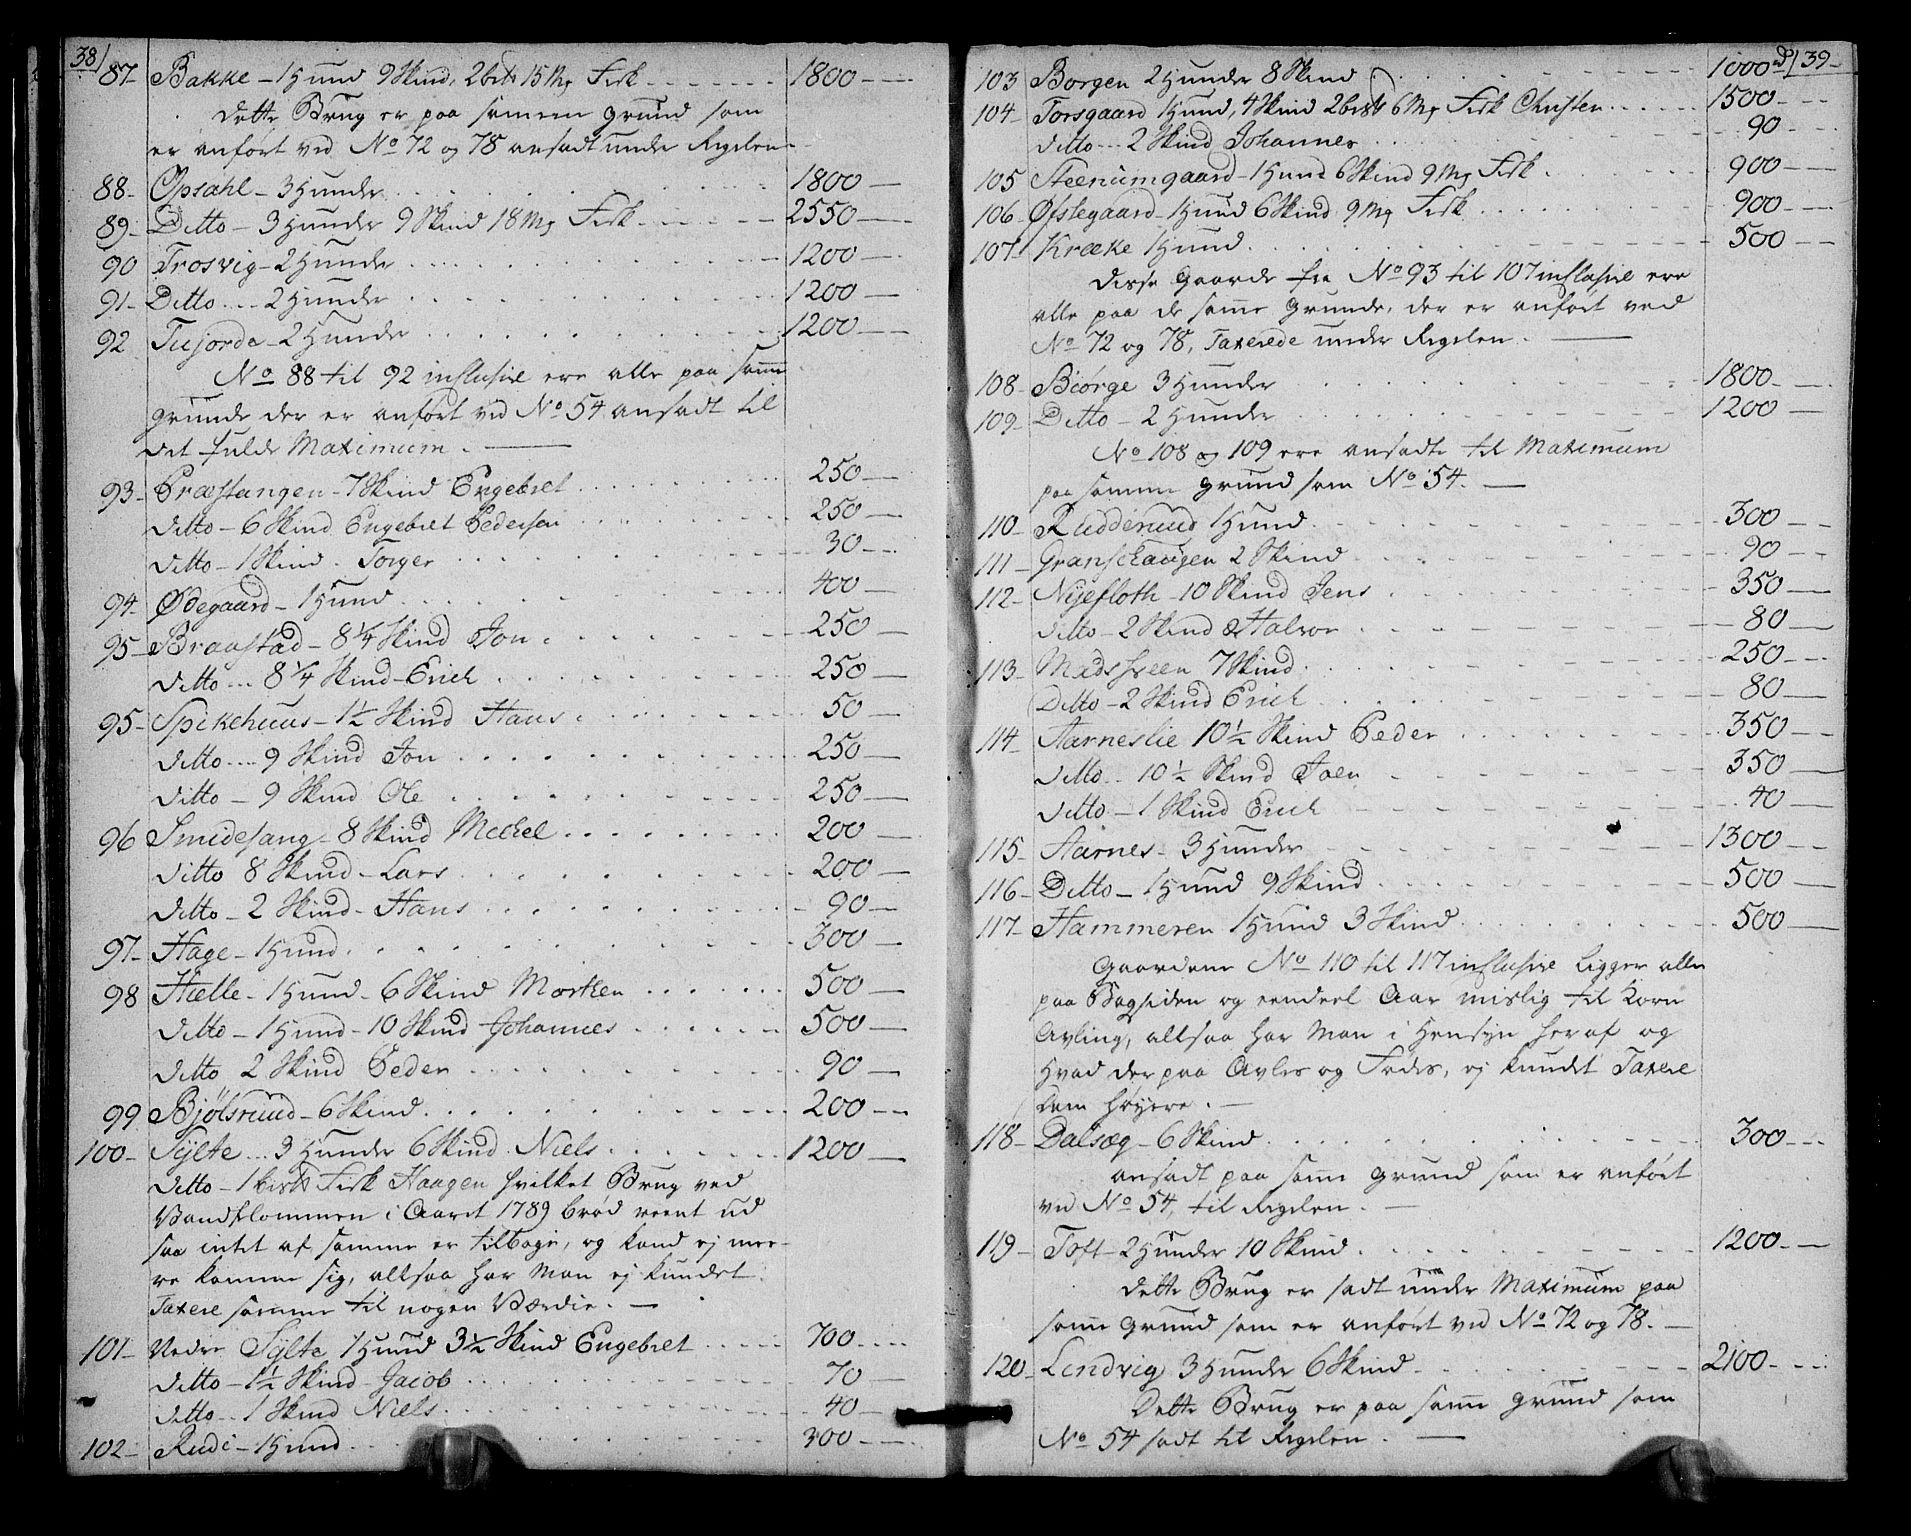 38/
87 Bakke – 1 Hund 9 Skind, 2 bis 15 Mg Fisk - - - - 1800 -
Dette Brug er paa samme grund som
er anført ved No 72 og 78 ansadt under Regelen -
88 - Opsahl - 3 Hunder . . . . 1800 -
89 - Ditto - 3 Hunder 9 Skind 18 Mg Fisk - - - 2550 -
90 Trosvig - 2 Hunder . . . . 1200 -
91 - Ditto - - 2 Hunder . . . . 1200 -
92 - 2 Hunder . . . . 1200 -
No 88 til 92 inclusive ere alle paa samme
grunde der er anført ved No 54 ansadt til
det fulde Maximum . -
93 - Præstangen - 7 Skind Engebret . . . . 250 -
Ditto - 6 Skind Engebret Pedersen . . . . 250 -
Ditto - 1 Skind . Torger . . . . 30 -
94 Ødegaard - 1 Hund . . . . 400 -
95 - Braastad - 8 1/4 Skind Jon . . . . 250 -
Ditto - - 8 1/4 Skind - Erich . . . . 250 -
95 - Spikehuus - 1 1/2 Skind Hans . . . . 50 -
Ditto - - 9 Skind Jon . . . . 250 -
Ditto - 9 Skind Ole . . . . 250 -
96 Smidesang - 8 Skind Michel . . . . 200 -
Ditto 8 Skind - Lars . . . . 200 -
Ditto - 2 Skind - Hans . . . . 90 -
97 - Hage - 1 Hund . . . . 300 -
98 Hælle - 1 Hund - 6 Skind Morthen . . . . 500 -
Ditto - 1 Hund - 10 Skind Johannes . . . . 500 -
Ditto 2 Skind Peder . . . . 90 -
99 Bjølsruud - 6 Skind . . . . 200 -
100 - Sylte - - 3 Hunder 6 Skind Niels . . . . 1200 -
Ditto - 1 bis Fisk Haagen hvilket Brug ved
Vandflommen i Aaret 1789 brød reent ud
saa intet af samme er tilbage, og kand ej mee-
re komme sig, altsaa har man ej kundet
Taxere samme til nogen Værdie . -
101 - Nedre Sylte 1 Hund 3 1/2 Skind Engebret . . . . 700 -
Ditto - 1 1/2 Skind - Jacob . . . . 70 -
Ditto - - 1 Skind Niels . . . . 40 -
102 - Rudi - 1 Hund . . . . 300 -
39 -
103 Borgen 2 Hunder 8 Skind . . . . 1000 d
104 - Torsgaard 1 Hund, 4 Skind 2 bis 6 Mg Fisk Christen . . . . 1500 -
Ditto - - 2 Skind Johannes . . . . 90 -
105 Steenumgaard - 1 Hund 6 Skind 9 Mg Fisk . . . . 900 -
106 - Øfstegaard - 1 Hund 6 Skind 9 Mg Fisk . . . . 900 -
107 - Kræke 1 Hund . . . . 500 -
Disse Gaarde fra No 93 til 107 inclusive ere
alle paa de samme grunde, der er anført ved
No 72 og 78, Taxerede under Regelen . -
108 - Biørge 3 Hunder . . . . 1800 -
109 - Ditto - 2 Hunder . . . . 1200 -
No 108 og 109 ere ansadte til Maximum
paa samme grund som No 54. -
110 - Rudderuud 1 Hund . . . . 300 -
111 - Granschaugen 2 Skind . . . . 90 -
112 - Nyefloth - 10 Skind Jens . . . . 350 -
Ditto - 2 Skind Halvor . . . . 80 -
113 - Madssveen 7 Skind . . . . 250 -
Ditto - 2 Skind Erich . . . . 80 -
114 - Aarneslie 10 1/2 Skind Peder . . . . 350 -
Ditto - - 10 1/2 Skind Joen . . . . 350 -
Ditto - 1 Skind Erich . . . . 40 -
115 - Aarnes - 3 Hunder . . . . 1300 -
116 - Ditto - 1 Hund 9 Skind . . . . 500 -
117 - Hammeren 1 Hund 3 Skind . . . . 500 -
Gaardene No 110 til 117 inclusive ligger alle
paa Bagsiden og eendeel Aar mislig til Korn
Avling, altsaa har Man i Hensyn heraf og
Hvad der paa Avles og Fødes, ej kundet Taxere
dem høyere . -
118 - Dalsæg - 6 Skind . . . . 300 -
ansadt paa samme grund som er anført
ved No 54, til Regelen . -
119 - Toft - 2 Hunder 10 Skind . . . . 1200 -
Dette Brug er sadt under Maximum paa
samme grund som er anført ved No 72 og 78. -
120 - Lendvig 3 Hunder 6 Skind . . . . 2100 -
Dette Brug er paa samme grund som
No 54 sadt til Regelen . -